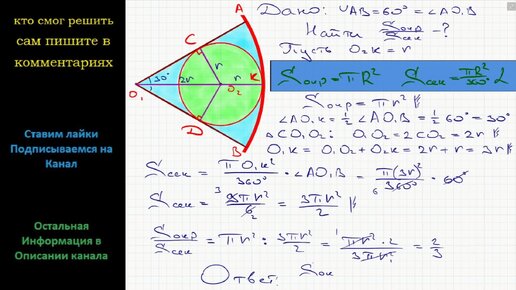 кто смог решить
сам пишите в
комментариях
Ставим лайки
Подписываемся на
Канал
Остальная
Информация в
Описании канала
A
C
30°
2r
r
r
K
O₁
O₂
D
B
Дано: ∪AB=60°=∠AO₁B
Найти Sокр/Sсек - ?
Пусть O₂K = r
Sокр = πR² Sсек = πR²/360° α
Sокр = πr²
∠AO₁K = 1/2 ∠AO₁B = 1/2 60° = 30°
△CO₁O₂: O₁O₂ = 2CO₂ = 2r
O₁K = O₁O₂ + O₂K = 2r + r = 3r
Sсек = πO₁K²/360° · ∠AO₁B = π(3r)²/360° · 60°
6
Sсек = 9πr²/6 = 3πr²/2
3
2
Sокр/Sсек = πr² : 3πr²/2 = πr²·2/3πr² = 2/3
1
Ответ: Sок